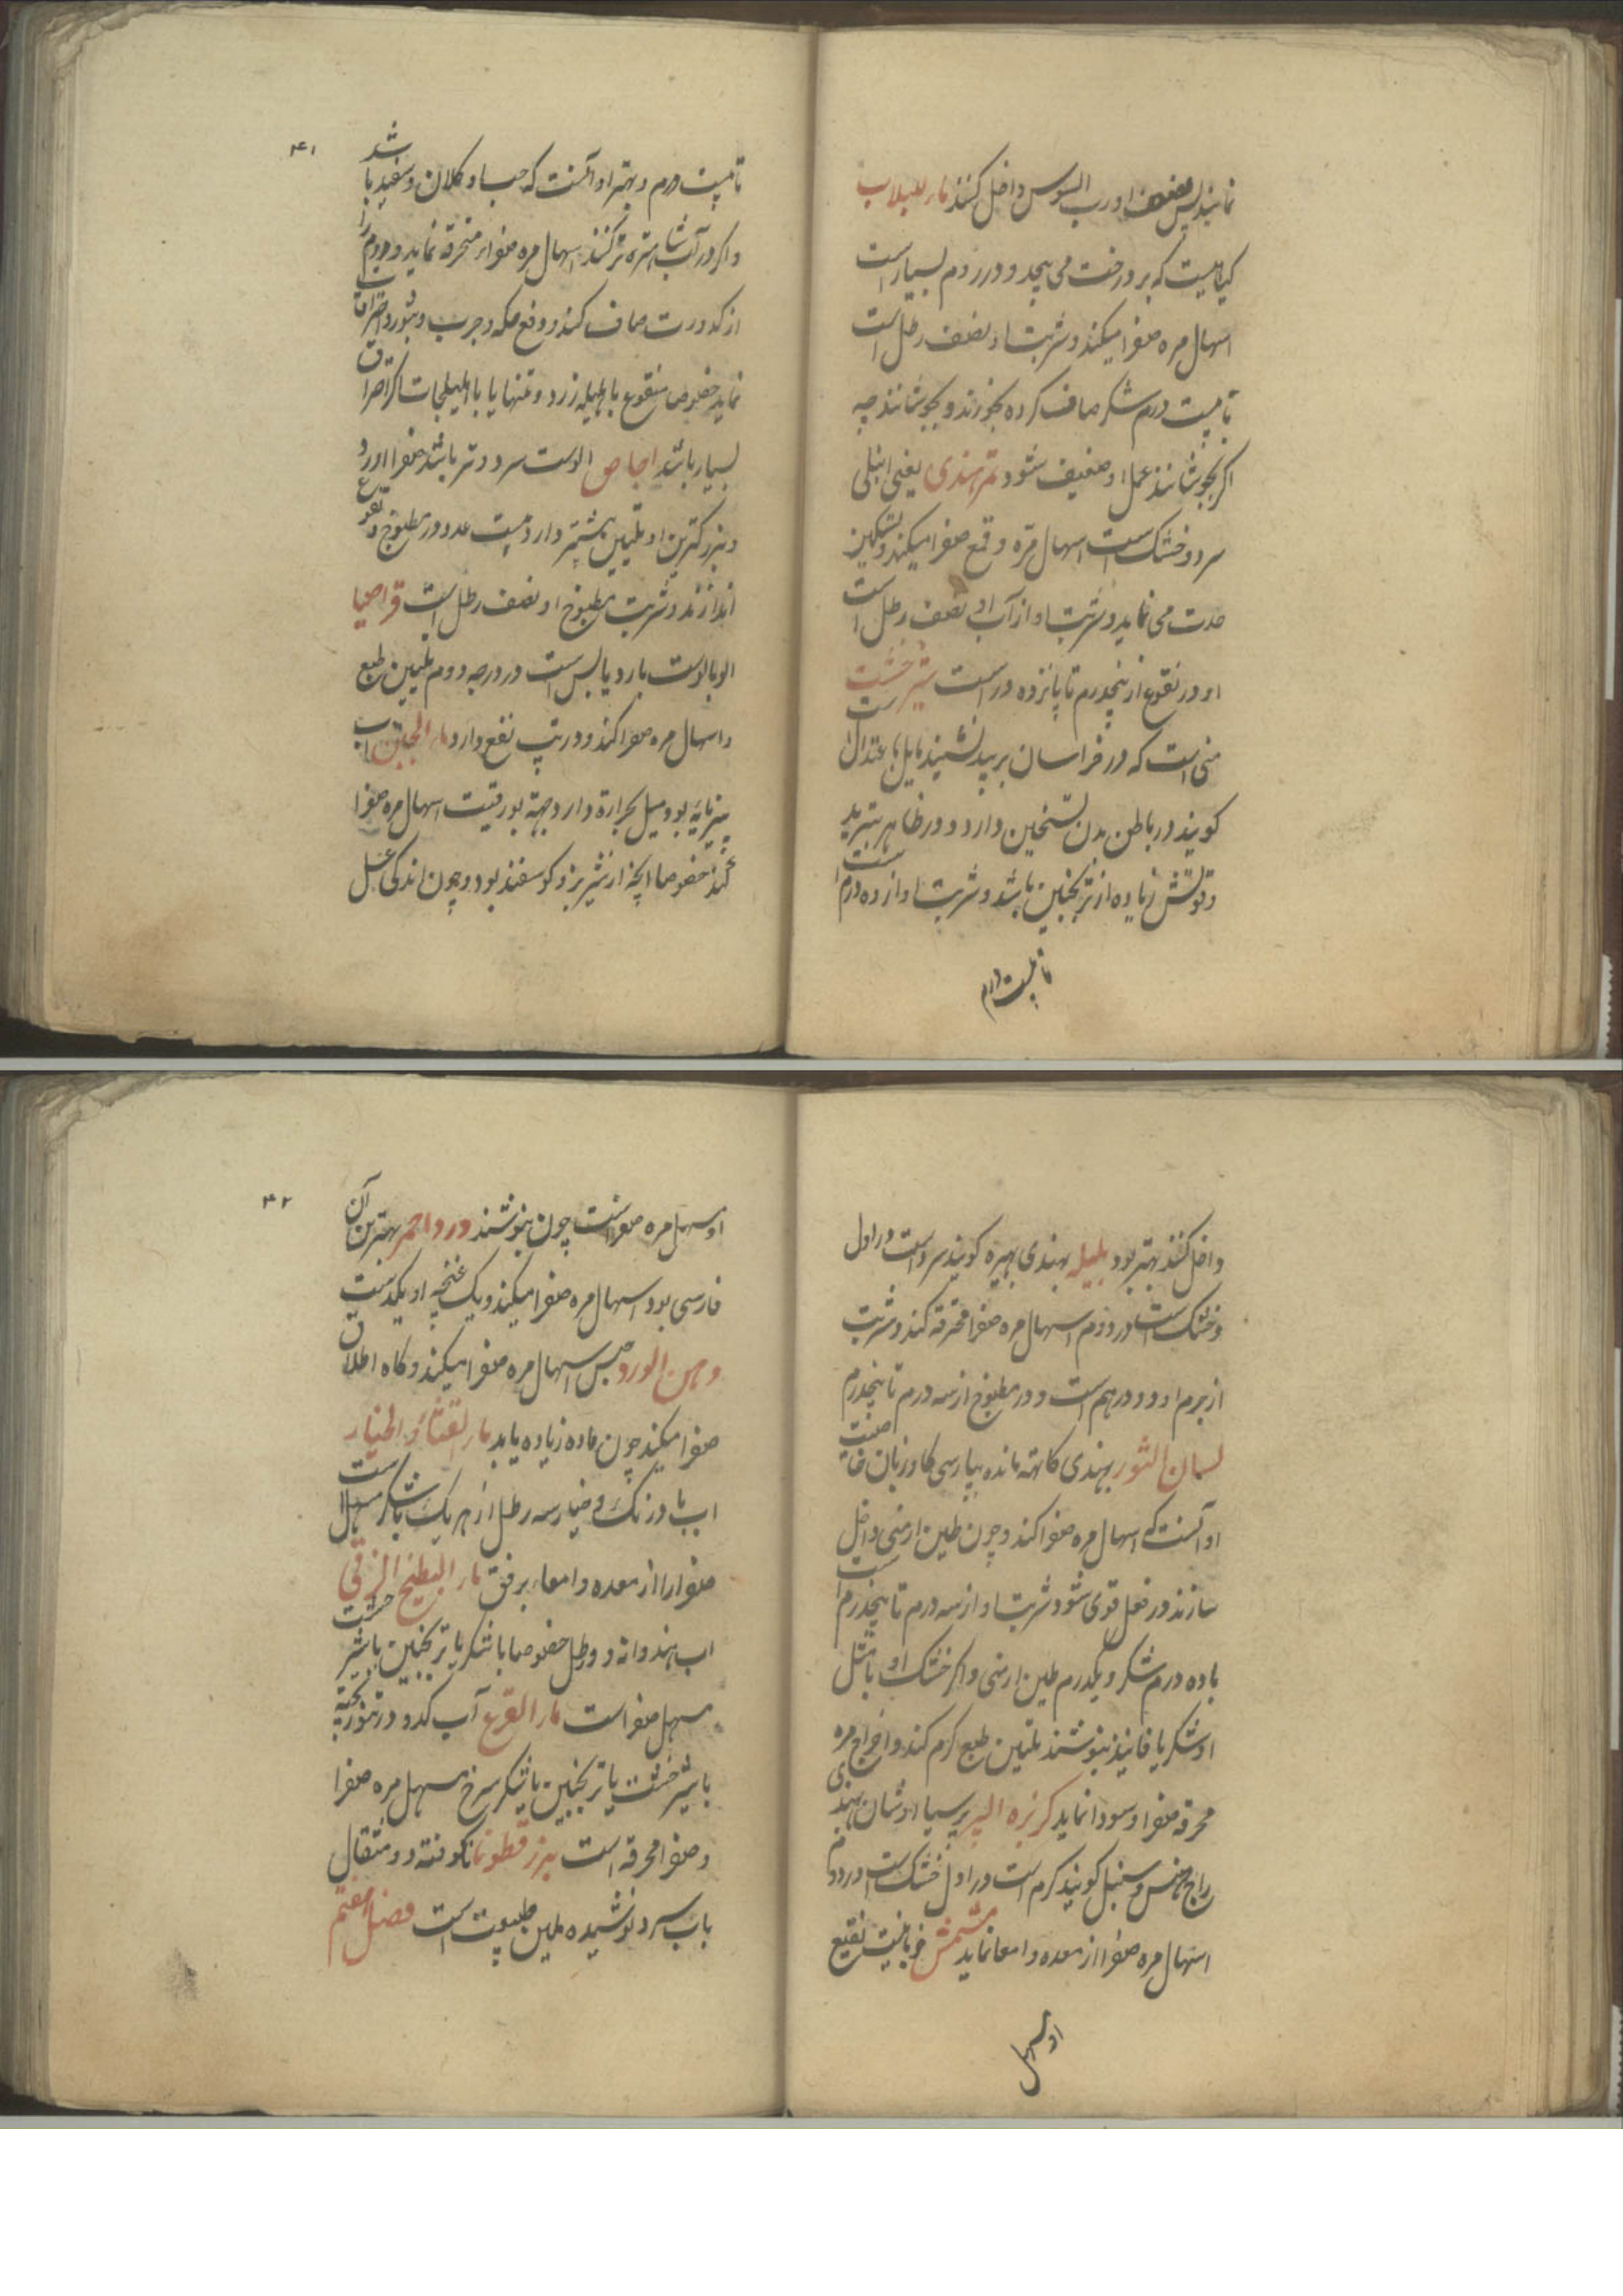 نمایند پس مصنف او رب السوس داخل کنند ماء اللبلاب
کیاهیست که بر درخت می پیچد و در ردم بسیار است
اسهال مره صفرا میکند و شربت او نصف رطل است
تا بیست درم شکر صاف کرده بخورند و بجوشانند چه
اکر بجوشانند عمل او ضعیف شود تمر هندی یعنی انبلی
سرد و خشک است اسهال مره و قمع صفرا میکند و تسکین
حدت می نماید و شربت او از آب او نصف رطل است
او در نقوع از پنجدرم تا پانزده درم است شیر خشت
منی است که در خراسان بر بید نشیند مایل باعتدال است
کویند در باطن بدن تسخین دارد و در ظاهر تبرید
و قوتش زیاده از ترنجبین باشد و شربت او از ده درم است
تا بیست درم
۴۱
تا بیست درم و بهتر او آنست که حب او کلان و سفید باشد
و اکر در آب شاهتره تر کنند اسهال مره صفراء محرقه نماید و دم را
از کدورت صاف کند و دفع حکه و جرب و بثور و احتراقات
نماید خصوصا منقوع با هلیله زرد و تنها یا با هلیلجات اکر احتراق
بسیار باشد اجاص الوست سرد و تر باشد صفرا اورد
و بزرکترین او تلیین بیشتر دارد بیست عدد در مطبوخ و نقوع
اندازند و شربت مطبوخ او نصف رطل است قراصیا
الوبالوست بارد یابس است در درجه دوم تلیین طبع
و اسهال مره صفرا کند و در تب نفع دارد ماء الجبن آب
پنیرمایه بود میل بحرارة دارد جهة بورقیت اسهال مره صفرا
کند خصوصا آنچه از شیر بز و کوسفند بود و چون اندکی عسل
داخل کنند بهتر بود بلیله بهندی بهیره کویند سرد است در اول
و خشک است در دوم اسهال مره صفرا محترقه کند و شربت
از جرم او دو درهم است و در مطبوخ از سه درم تا پنجدرم
لسان الثور بهندی کاتهه مانده بپارسی کاوزبان خاصیت
او آنست که اسهال مره صفرا کند و چون طین ارمنی داخل
سازند در فعل قوی شود و شربت او از سه درم تا پنجدرم است
با ده درم شکر و یکدرم طین ارمنی و اکر خشک او با مثل
او شکر یا فانیذ بنوشند تلیین طبع کرم کند و اخراج مره
محرقه صفرا و سودا نماید کزبرة البیر پرسیاوشان بهندی
راج هنس و سنبل کویند کرم است در اول خشک است در دوم
اسهال مره صفرا از معده و امعا نماید مشمش خوبانیست نقیع
او مسهل
۴۲
او مسهل مره صفراست چون بنوشند ورد احمر بهترین آن
فارسی بود اسهال مره صفرا میکند و یک غنچه او یکدست
دهن الورد حبس اسهال مره صفرا میکند و کاه اطلاق
صفرا میکند چون ماده زیاده یابد ماء القثاء و الخیار
اب بادرنک و خیار سه رطل از هر یک با شکر مسهل است
صفرا را از معده و امعاء برفق ماء البطیخ الزقی
اب هندوانه دو رطل خصوصا با شکر یا ترنجبین یا شیر خشت
مسهل صفراست ماء القرع آب کدو در تنور پخته
با شیر خشت یا ترنجبین یا شکر سرخ مسهل مره صفرا
و صفرا محرقه است بزر قطونا ناکوفته دو مثقال
باب سرد نوشیده ملین طبیعت است فصل هفتم